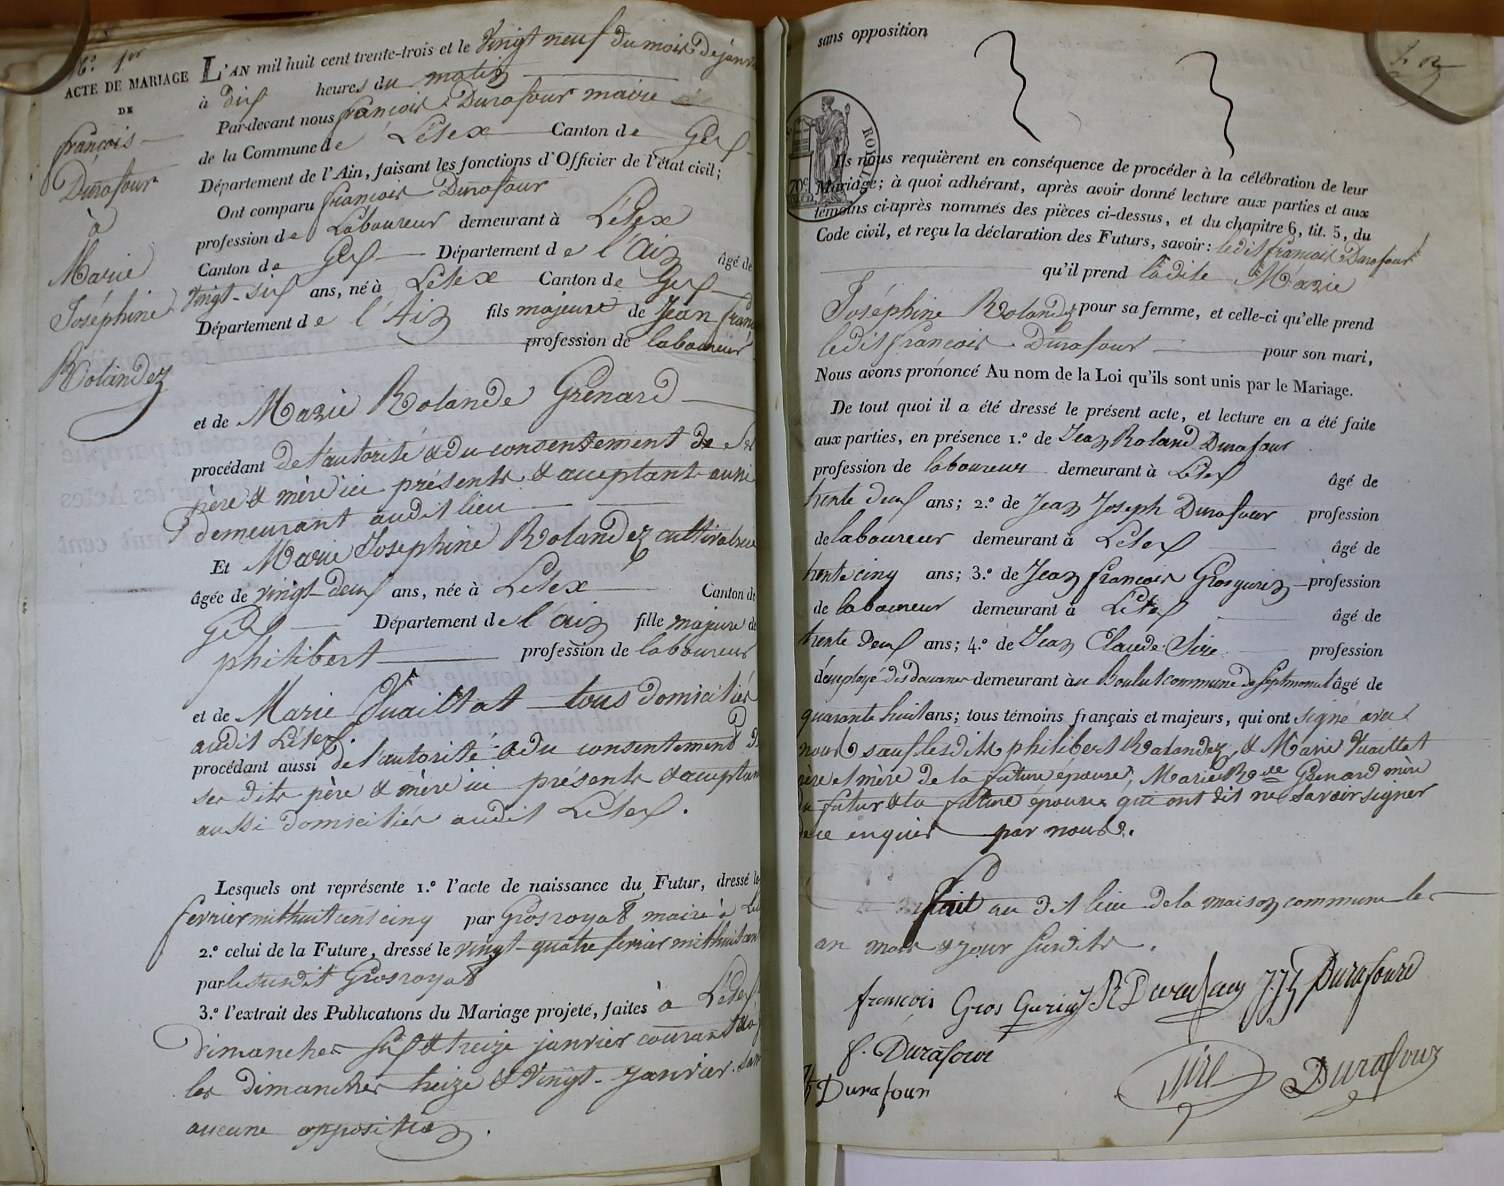 N.° 1er
ACTE DE MARIAGE
DE
françois
Durafour
à
Marie
Joséphine
Rolandez
L'AN mil huit cent trente-trois et le vingt neuf du mois de janv
à dix heures du matin
Par-devant nous françois Durafour maire
de la Commune de Lélex Canton de Gex
Département de l'Ain, faisant les fonctions d'Officier de l'état civil;
Ont comparu françois Durafour
profession de Laboureur demeurant à Lélex
Canton de Gex Département de l'Ain âgé de
vingt-six ans, né à Lélex Canton de Gex
Département de l'Ain fils majeure de Jean franç
profession de laboureur
et de Marie Rolande Grénard
procédant de l'autorité & du consentement de Ses
père & mère ici présents & acceptants aussi
demeurant audit lieu
Et Marie Josephine Rolandez cultivatrice
âgée de vingt-deux ans, née à Lélex Canton de
Gex Département de l'ain fille majeure de
philibert profession de laboureur
et de Marie Vuaillat tous domiciliés
audit Lélex.
procédant aussi de l'autorité & du consentement de
ses dits père & mère ici présents & acceptan
aussi domiciliés audit Lélex.
Lesquels ont représente 1.° l'acte de naissance du Futur, dressé le
fevrier mil huit cent cinq par Grosroyat maire à Lél
2.° celui de la Future, dressé le vingt-quatre ferier mil huit cent
par le susdit Grosroyat
3.° l'extrait des Publications du Mariage projeté, faites à Lélex
dimanches six & treize janvier courant & a
les dimanches treize & vingt-janvier. sans
aucune opposition.
sans opposition
f. 12
ROYAL
Ils nous requièrent en conséquence de procéder à la célébration de leur
Mariage; à quoi adhérant, après avoir donné lecture aux parties et aux
témoins ci-après nommés des pièces ci-dessus, et du chapitre 6, tit. 5, du
Code civil, et reçu la déclaration des Futurs, savoir: ledit françois Durafour
qu'il prend ladite Marie
Joséphine Rolandez pour sa femme, et celle-ci qu'elle prend
ledit françois Durafour pour son mari,
Nous avons prononcé Au nom de la Loi qu'ils sont unis par le Mariage.
De tout quoi il a été dressé le présent acte, et lecture en a été faite
aux parties, en présence 1.° de Jean Roland Durafour
profession de laboureur demeurant à Lélex âgé de
trente deux ans; 2.° de Jean Joseph Durafour profession
de laboureur demeurant à Lélex âgé de
trente cinq ans; 3.° de Jean françois Grosgurin profession
de laboureur demeurant à Lélex âgé de
trente deux ans; 4.° de Jean Claude Sire profession
d'employé des douanes demeurant à au Boulut commune de Septmoncel âgé de
quarante huit ans; tous témoins français et majeurs, qui ont signé avec
nous sauf lesdits philibert Rolandez, & Marie Vuaillat
père et mère de la future épouse, Marie Rde Grenard mère
du futur & la future épouse qui ont dit ne savoir signer
de ce enquis par nous.
fait au dit lieu de la maison commune les
an mois & jour susdits.
françois Gros Gurin J R Durafour J. J. Durafourd
f. Durafour
Durafour
Sire
Durafour